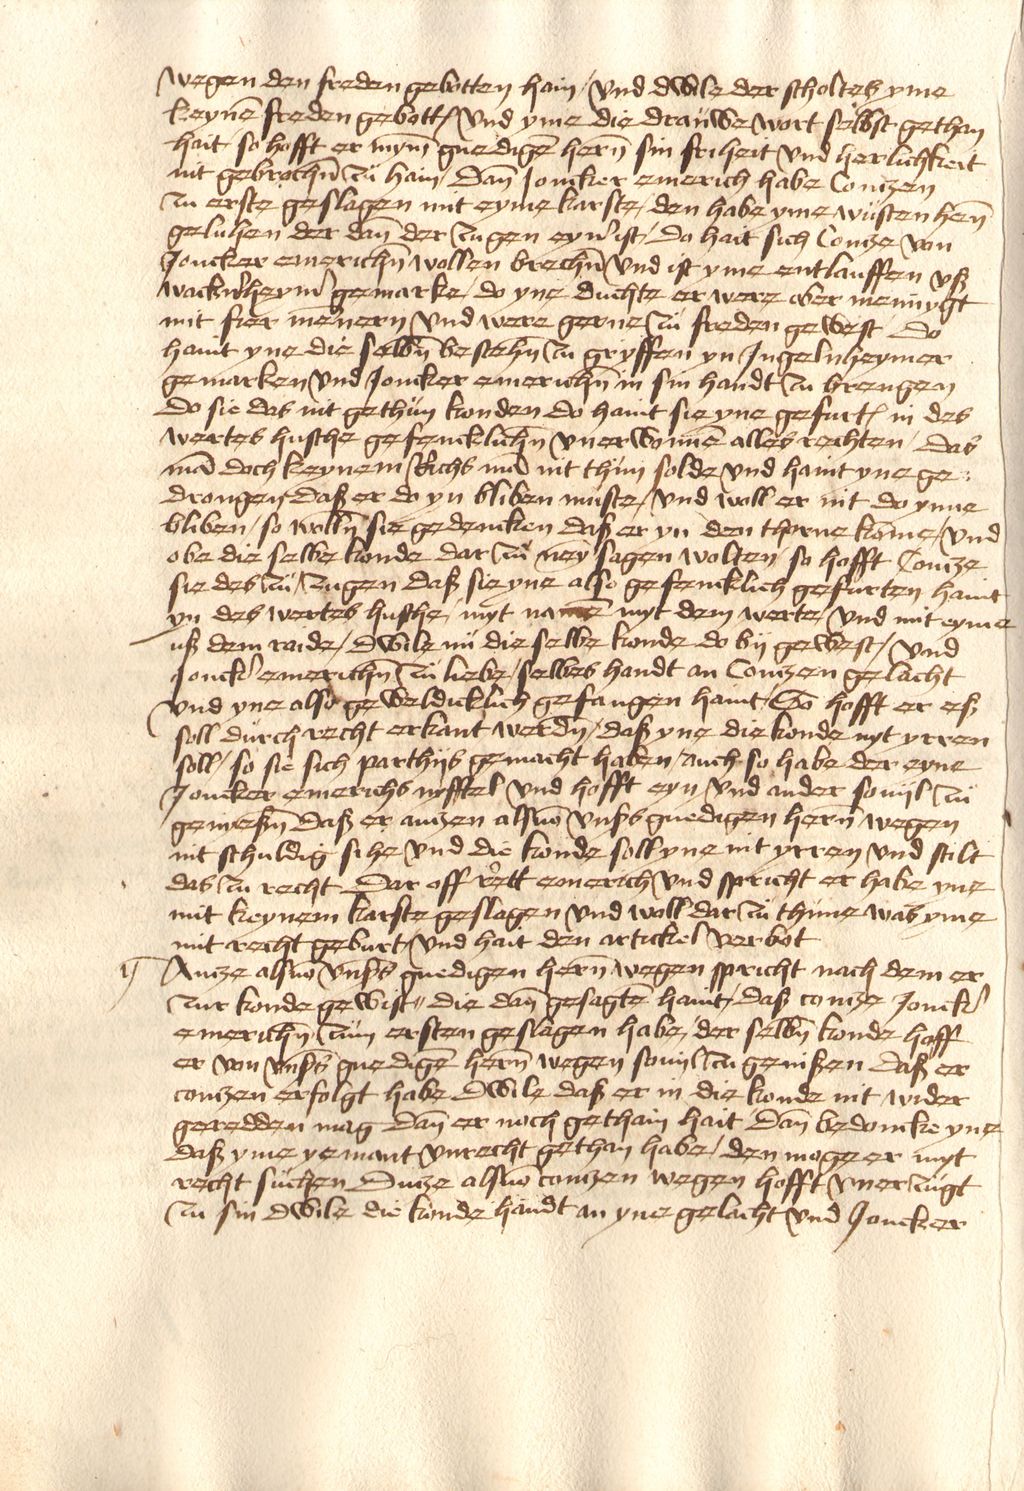 wegen den freden gebotten hain / und dwile der scholteß yme
keynē freden gebott / und yme die drauwe wort selbst gethan
hait so hofft er mynm̄ gnedigē hern̄ sin friheit und herlichkeit
nit gebrochn̄ zu hain / Dan̄ Joncker emerich habe Contzen
zu erste geslagen mit eyme karste / den habe yme wusten hen̄
geluhen der dan̄ der zugen eyn̄ ist / do hait sich Contze von
Joncker emerichn̄ wollen brechn̄ und ist yme entlauffen uß
wackernheym̄ gemarke / do yne duchte er were ober mennygt
mit fier mennern und were gerne zu freden gewest Do
haint yne die selbn̄ bestehn̄ zu gryffen yn Ingelnheymer
gemarken und Joncker emerichn̄ in sin handt zu brengen
Do sie das nit gethun konden do haint sie yne gefurt in des
wertes husche gefencklichn̄ unerwonnē alles rechten / Das
mā doch keynem Richs mā nit thun solde und haint yne ge-
drongen daß er do yn bliben muste / und woll er nit do ynne
bliben / so wolln̄ sie gedencken daß er yn den thorne kōme / und
obe die selbe konde dar zu ney sagen wolten so hofft Contze
sie des zu zugen daß sie yne also gefencklich gefurten haint
yn des wertes husche / myt namē myt dem werte / und mit eyme
uß dem raide / Dwile nu die selbe konde do bij gewest / und
Jonck' emerichn̄ zu liebe / selbes handt an Contzen gelacht
und yne also geweldicklich gefangen haint / So hofft er eß
soll durch recht erkant werdn̄ / daß yne die konde nyt yrren
soll / so sie sich parthijs gemacht haben / auch so habe der eyne
Joncker emerichs nyfftel und hofft eyn und ander sovijl zu
genießn̄ daß er antzen als vō unß's gnedigen hern̄ wegen
nit schuldig sihe und die konde soll yne nit yrren und stilt
das zu recht Dar off rett emerich und spricht er habe yme
mit keynem karste geslagen und woll dar zu thune was yme
mit recht geburt / und hait den artickel verbot
Antze als vō unß's gnedigen hern̄ wegen spricht nach dem er
zur konde gewist / die dan̄ gesagtē haint / daß contze Jonck'
emerichn̄ zum ersten geslagen habe / der selbn̄ konde hoff
er von unß's gnedigē hern̄ wegen sovijl zu genißen daß er
contzen erfolgt habe Dwile daß er in die konde nit wider
geredden mag Dan̄ er noch gethain hait Dan̄ bedoncke yne
daß yme yemant unrecht gethan habe / den moge er myt
recht suchen Antze als vō contzen wegen hofft unerzugt
zu sin Dwile die konde handt an yne gelacht und Joncker